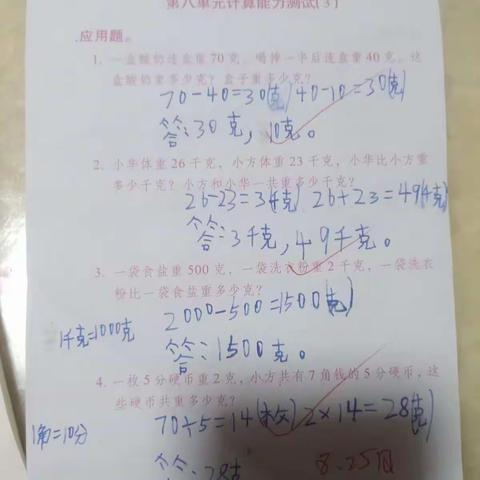 第八单元计算能力测试(3)
应用题。
1. 一盒酸奶连盒重70克,喝掉一半后连盒重40克。这
盒酸奶重多少克?盒子重多少克?
70-40=30(克) 40-10=30(克)
答:30克,10克。
2. 小华体重26千克,小方体重23千克,小华比小方重
多少千克?小方和小华一共重多少千克?
26-23=3(千克) 26+23=49(千克)
答:3千克,49千克。
3. 一袋食盐重500克,一袋洗衣粉重2千克,一袋洗衣
粉比一袋食盐重多少克?
1千克=1000克
2000-500=1500(克)
答:1500克。
4. 一枚5分硬币重2克,小方共有7角钱的5分硬币,这
些硬币共重多少克?
70÷5=14(枚) 2×14=28(克)
1角=10分
答:28克
8.25